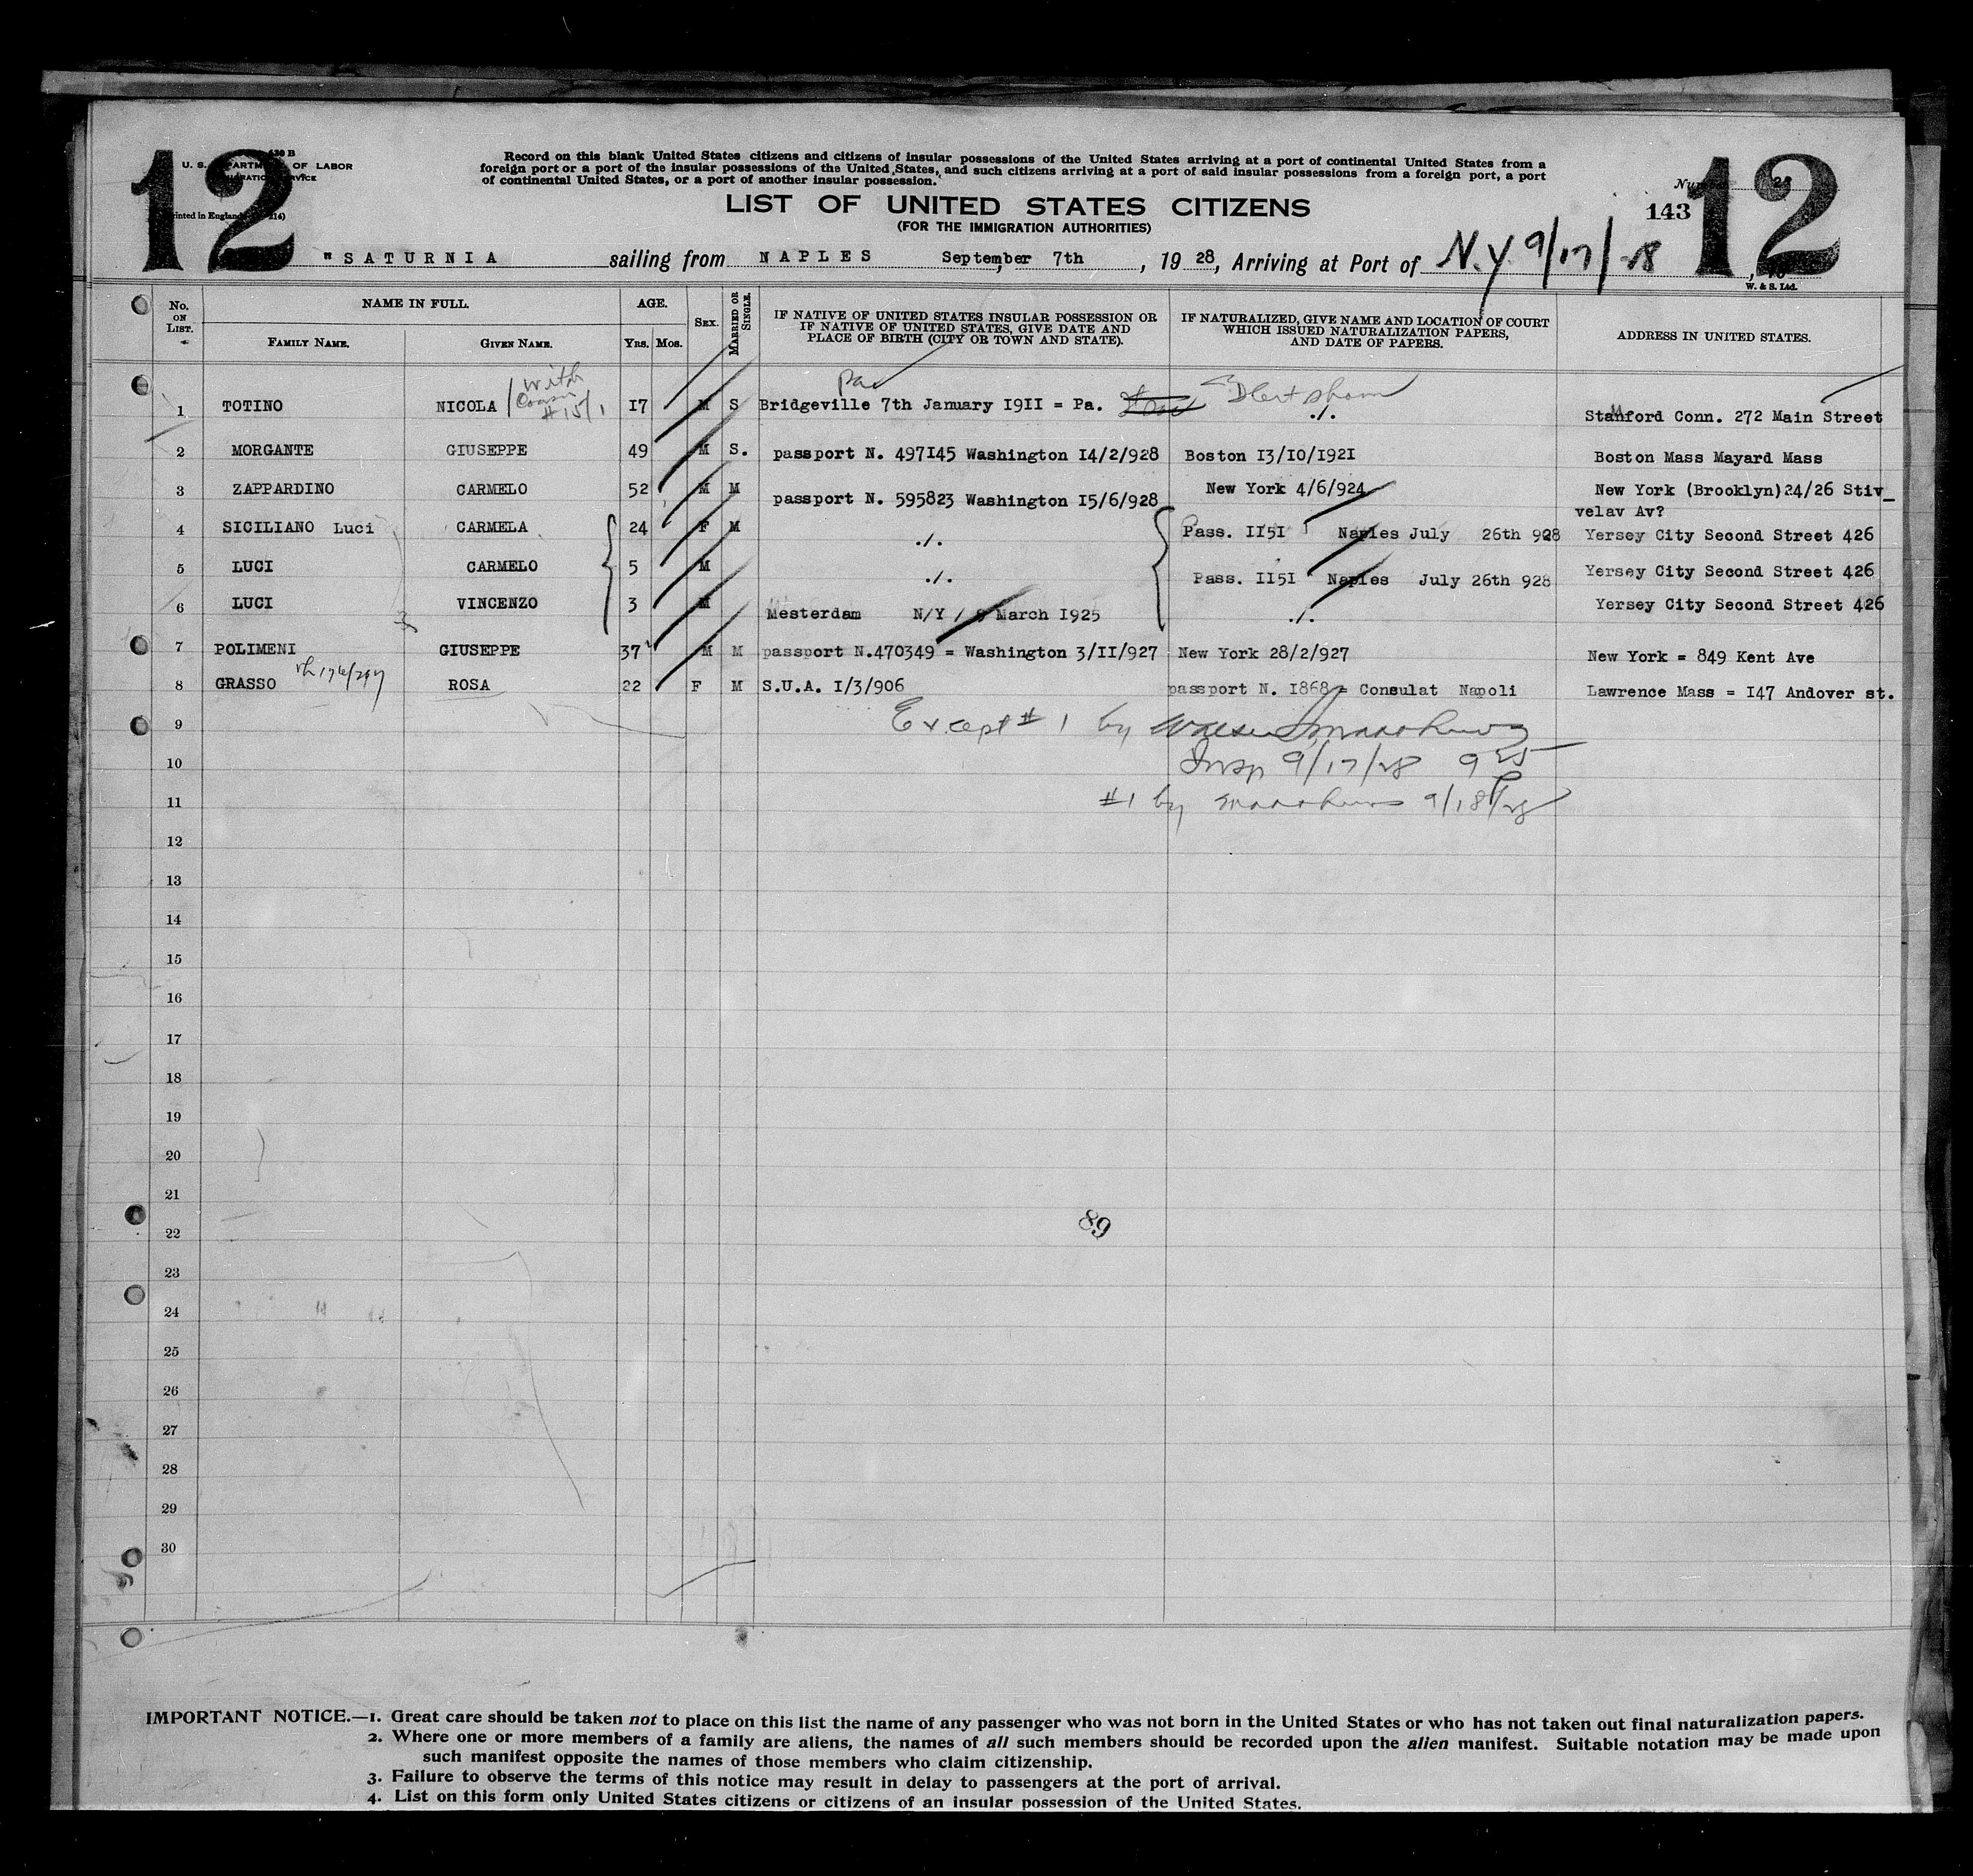 12
630 B
U. S. DEPARTMENT OF LABOR
IMMIGRATION SERVICE
Printed in England
214)
Record on this blank United States citizens and citizens of insular possessions of the United States arriving at a port of continental United States from a
foreign port or a port of the insular possessions of the United States, and such citizens arriving at a port of said insular possessions from a foreign port, a port
of continental United States, or a port of another insular possession.
Number
143
12
LIST OF UNITED STATES CITIZENS
(FOR THE IMMIGRATION AUTHORITIES)
"SATURNIA sailing from NAPLES September 7th, 1928, Arriving at Port of N.Y. 9/17/28
W. & S. Ltd.
No. ON LIST. NAME IN FULL. AGE. SEX. MARRIED OR SINGLE. IF NATIVE OF UNITED STATES INSULAR POSSESSION OR IF NATIVE OF UNITED STATES, GIVE DATE AND PLACE OF BIRTH (CITY OR TOWN AND STATE). IF NATURALIZED, GIVE NAME AND LOCATION OF COURT WHICH ISSUED NATURALIZATION PAPERS, AND DATE OF PAPERS. ADDRESS IN UNITED STATES.
FAMILY NAME. GIVEN NAME. YRS. MOS.
with Cousin #15/1
Pa
1 TOTINO NICOLA 17 M S Bridgeville 7th January I9II = Pa. ./. Stanford Conn. 272 Main Street
2 MORGANTE GIUSEPPE 49 M S. passport N. 497I45 Washington I4/2/928 Boston I3/I0/I92I Boston Mass Mayard Mass
3 ZAPPARDINO CARMELO 52 M M passport N. 595823 Washington I5/6/928 New York 4/6/924 New York (Brooklyn)24/26 Stiv_
velav Av?
4 SICILIANO Luci CARMELA 24 F M ./. Pass. II5I Naples July 26th 928 Yersey City Second Street 426
5 LUCI CARMELO 5 M ./. Pass. II5I Naples July 26th 928 Yersey City Second Street 426
6 LUCI VINCENZO 3 M Mesterdam N/Y / 8 March I925 ./. Yersey City Second Street 426
7 POLIMENI GIUSEPPE 37 M M passport N.470349 = Washington 3/II/927 New York 28/2/927 New York = 849 Kent Ave
8 GRASSO ROSA 22 F M S.U.A. I/3/906 passport N. I868 = Consulat Napoli Lawrence Mass = I47 Andover st.
9 Except #1 by
10 Insp 9/17/28 9 25
11 #1 by 9/18/28
12
13
14
15
16
17
18
19
20
21
22
89
23
24
25
26
27
28
29
30
IMPORTANT NOTICE.—1. Great care should be taken not to place on this list the name of any passenger who was not born in the United States or who has not taken out final naturalization papers.
2. Where one or more members of a family are aliens, the names of all such members should be recorded upon the alien manifest. Suitable notation may be made upon
such manifest opposite the names of those members who claim citizenship.
3. Failure to observe the terms of this notice may result in delay to passengers at the port of arrival.
4. List on this form only United States citizens or citizens of an insular possession of the United States.